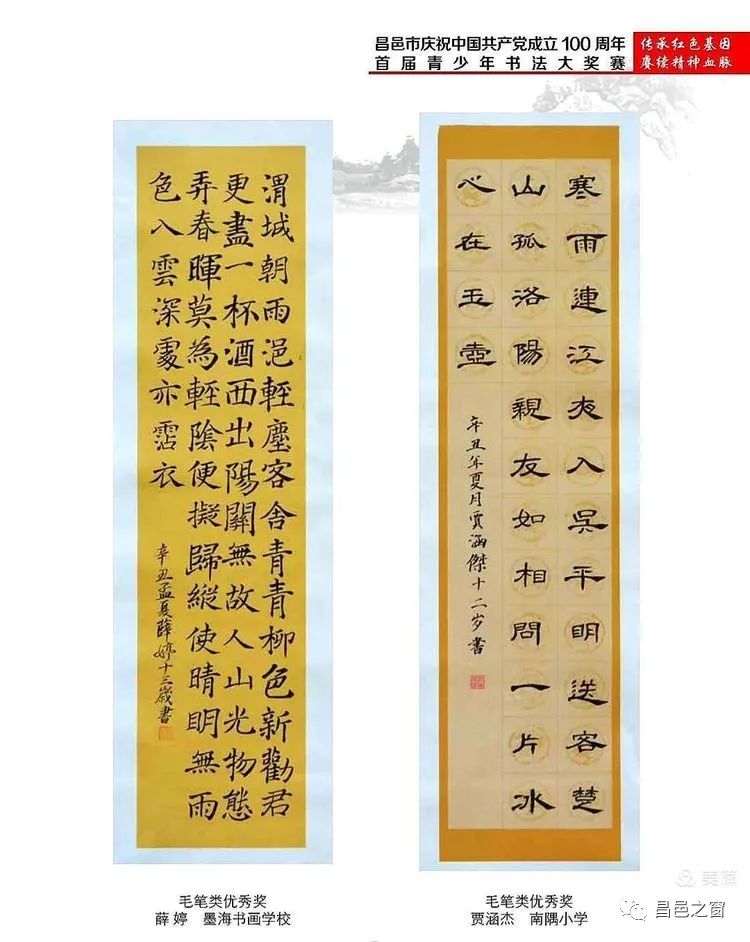 昌邑市庆祝中国共产党成立100周年
首届青少年书法大奖赛
传承红色基因
赓续精神血脉
渭城朝雨浥輕塵客舍青青柳色新勸君
更盡一杯酒西出陽關無故人山光物態
弄春暉莫為輕陰便擬歸縱使晴明無雨
色入雲深處亦霑衣
辛丑孟夏薛婷十三歲書
寒雨連江夜入吳平明送客楚
山孤洛陽親友如相問一片冰
心在玉壺
辛丑年夏月賈涵傑十二岁書
毛笔类优秀奖
薛婷 墨海书画学校
毛笔类优秀奖
贾涵杰 南隅小学
美篇
昌邑之窗